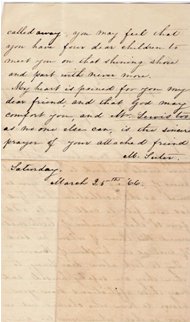 called away, you may feel that
you have four dear children to
meet you on that shining shore
and part with never more.
My heart is pained for you my
dear friend, and that God may
comfort you, and Mr. Lewis too
as no one else can, is the sincere
prayer of your attached friend
M.
Saturday,
March 25th '66.